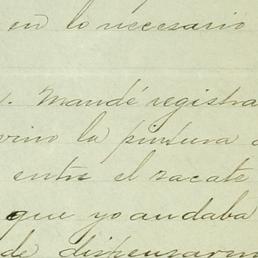 en lo necesario
. Mandé registra
vino la pintura
entre el zacate
que yo andaba
de dispensarm